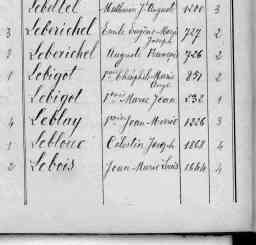 Lebellel Mathurin J. August 1200 3
3 Leberichel Emile Eugène Marie Joseph 727 2
2 Leberichel Auguste François 726 2
1 Lebigot Marie Ange 851 2
1 Lebigot Marie Jean 532 1
4 Leblay Jean-Marie 1226 3
1 Lebloux Célestin Joseph 1868 4
2 Lebois Jean Marie Louis 1644 4